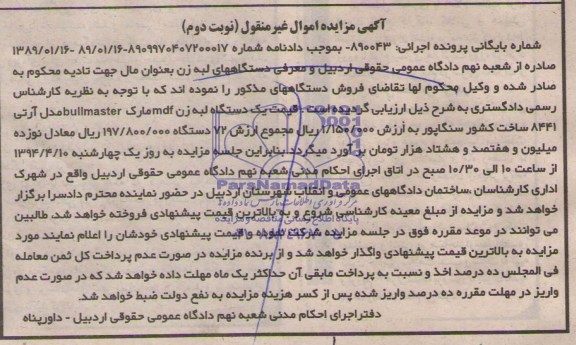 آگهی مزایده اموال غیر منقول (نوبت دوم)
شماره بایگانی پرونده اجرائی: ۸۹۰۰۴۳- بموجب دادنامه شماره ۸۹۰۹۹۷۰۴۰۷۲۰۰۰۱۷-۸۹/۰۱/۱۶ -۱۳۸۹/۰۱/۱۶
صادره از شعبه نهم دادگاه عمومی حقوقی اردبیل و معرفی دستگاههای لبه زن بعنوان مال جهت تادیه محکوم به
صادر شده و وکیل محکوم لها تقاضای فروش دستگاههای مذکور را نموده اند که با توجه به نظریه کارشناس
رسمی دادگستری به شرح ذیل ارزیابی گردیده است. قیمت یک دستگاه لبه زن mdf مارک bullmaster مدل آرتی
۸۴۴۱ ساخت کشور سنگاپور به ارزش ریال مجموع ارزش ۷۲ دستگاه ۱۹۷/۸۰۰/۰۰۰ ریال معادل نوزده
میلیون و هفتصد و هشتاد هزار تومان برآورد میگردد. بنابراین جلسه مزایده به روز یک چهارشنبه ۱۳۹۴/۴/۱۰
از ساعت ۱۰ الی ۱۰/۳۰ صبح در اتاق اجرای احکام مدنی شعبه نهم دادگاه عمومی حقوقی اردبیل واقع در شهرک
اداری کارشناسان ،ساختمان دادگاههای عمومی و انقلاب شهرستان اردبیل در حضور نماینده محترم دادسرا برگزار
خواهد شد و مزایده از مبلغ معینه کارشناسی شروع و به بالاترین قیمت پیشنهادی فروخته خواهد شد. طالبین
می توانند در موعد مقرره فوق در جلسه مزایده شرکت نموده و قیمت پیشنهادی خودشان را اعلام نمایند مورد
مزایده به بالاترین قیمت پیشنهادی واگذار خواهد شد و از برنده مزایده در صورت عدم پرداخت کل ثمن معامله
فی المجلس ده درصد اخذ و نسبت به پرداخت مابقی آن حداکثر یک ماه مهلت داده خواهد شد که در صورت عدم
واریز در مهلت مقرره ده درصد واریز شده پس از کسر هزینه مزایده به نفع دولت ضبط خواهد شد.
دفتر اجرای احکام مدنی شعبه نهم دادگاه عمومی حقوقی اردبیل - داورپناه
ParsNamadData